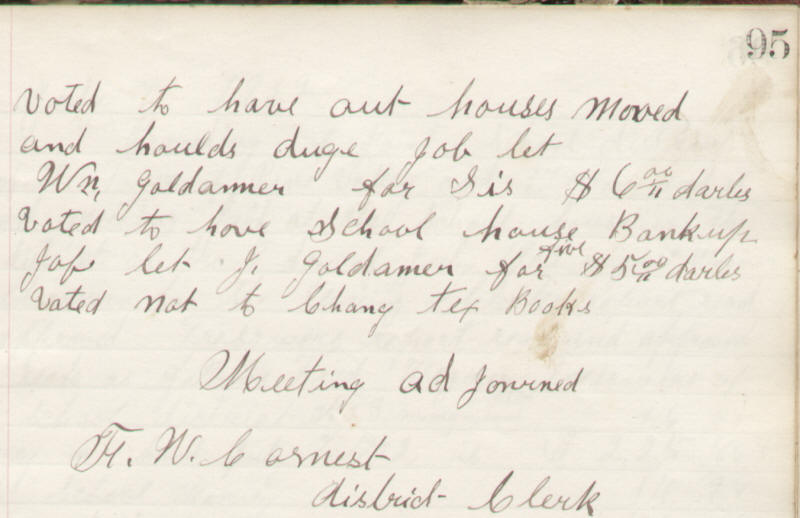 95
Voted to have out houses moved
and houlds duge Job let
Wm, Goldammer for Sis $6 00 darles
Voted to have School house Bank up
Job let J, Goldamer for five $5 00 darles
Voted not to Chang tex Books
Meeting ad Journed
W. Cornest
District Clerk